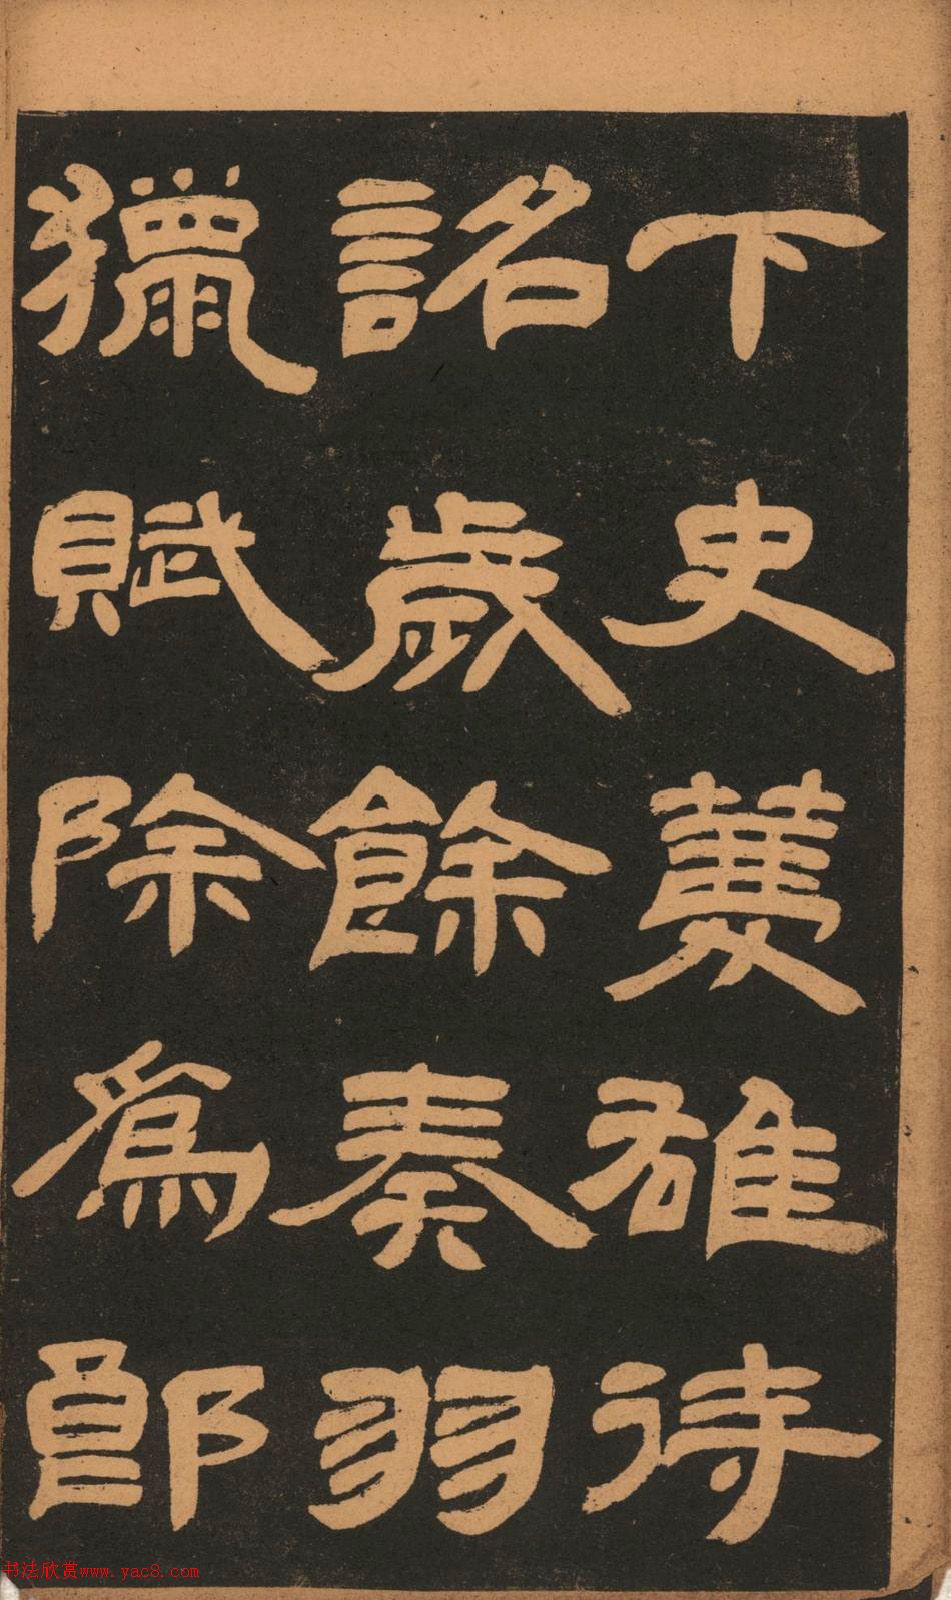 下史薦雄待
詔歲餘奏羽
獵賦除爲郎
书法欣赏www.yac8.com